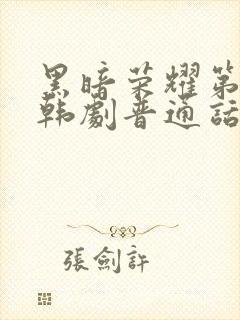 黑暗荣耀第
韩劇普通話
張劍許